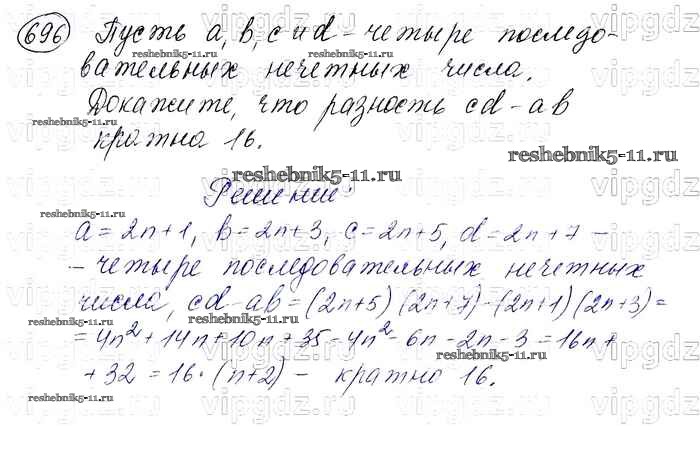 696 Пусть a, b, c и d – четыре последо-
вательных нечетных числа.
Докажите, что разность cd - ab
кратна 16.
Решение:
a = 2n+1, b = 2n+3, c = 2n+5, d = 2n+7 –
– четыре последовательных нечетных
числа, cd - ab = (2n+5)(2n+7) - (2n+1)(2n+3) =
= 4n² + 14n + 10n + 35 - 4n² - 6n - 2n - 3 = 16n +
+ 32 = 16 · (n+2) – кратно 16.
reshebnik5-11.ru
vipgdz